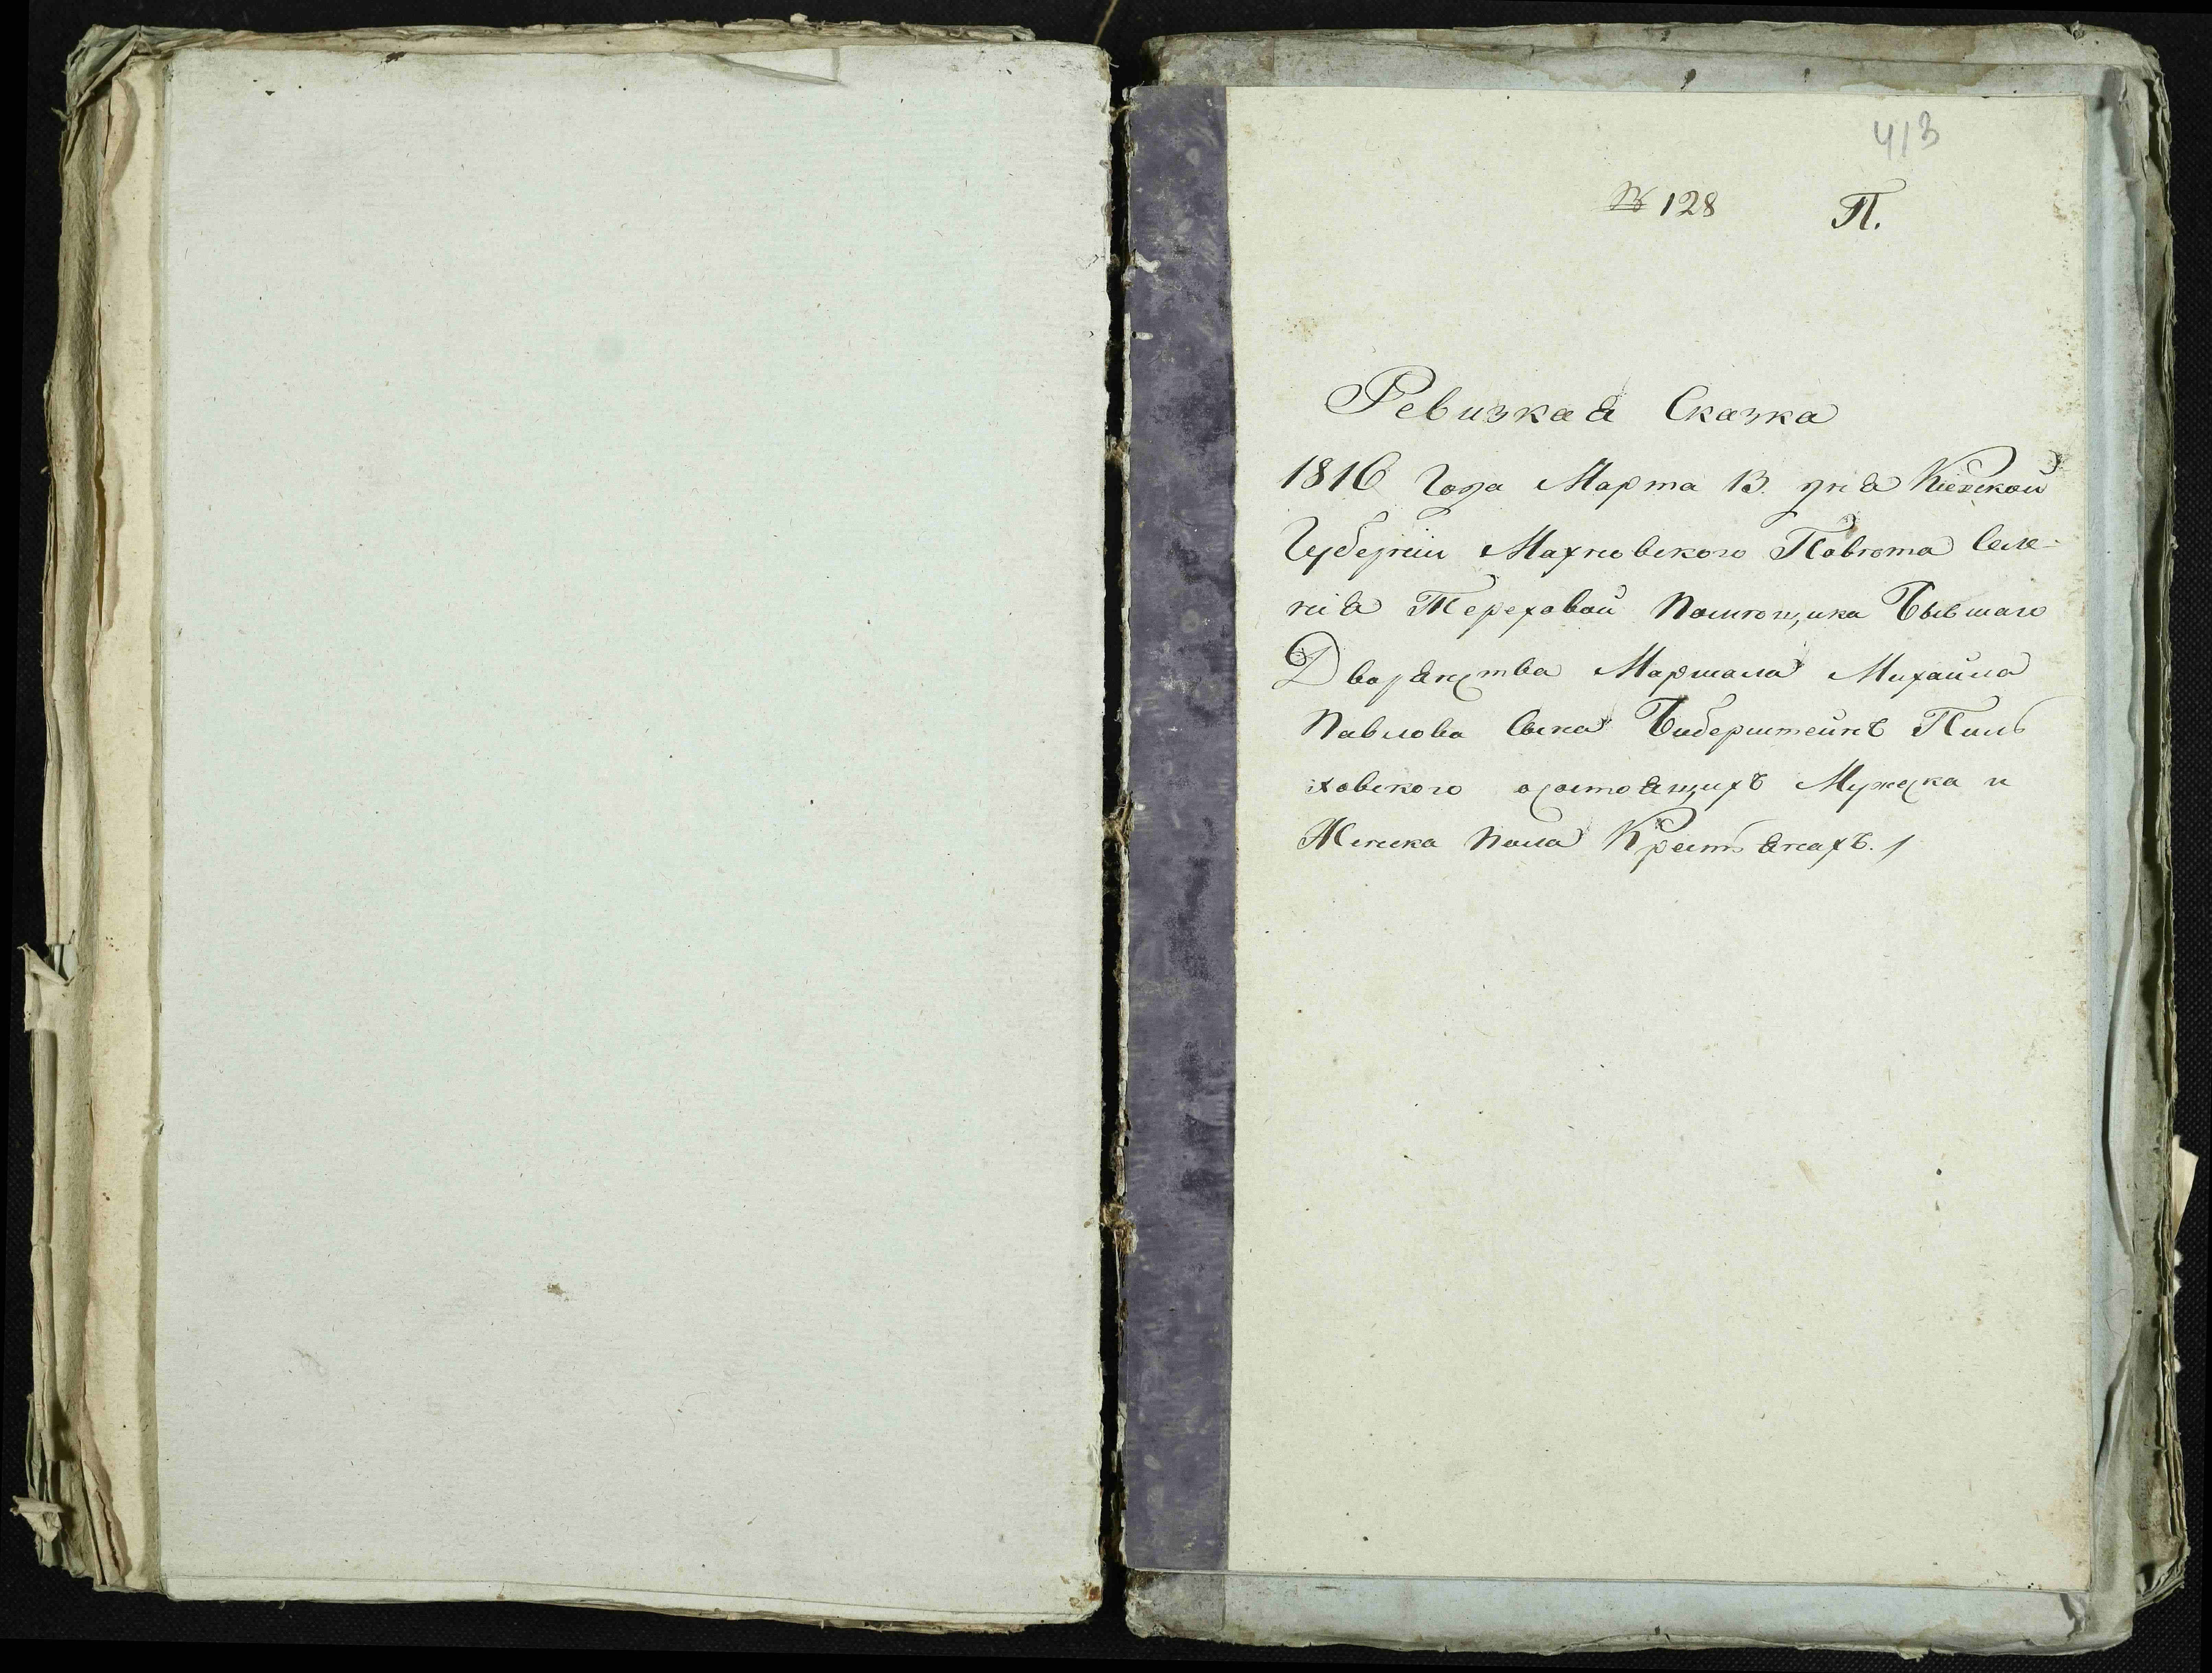 413
№ 128 П.
Ревизкая Сказка
1816 Года Марта 13. дня Кіевской
Губерніи Махновского Повѣта Селе-
нія Тереховой Помѣщика Бывшаго
Дворянства Маршала Михаила
Павлова Сына Биберштейнъ Пиль
ховского осостоящихъ Мужеска и
Женска пола Крестьянахъ.